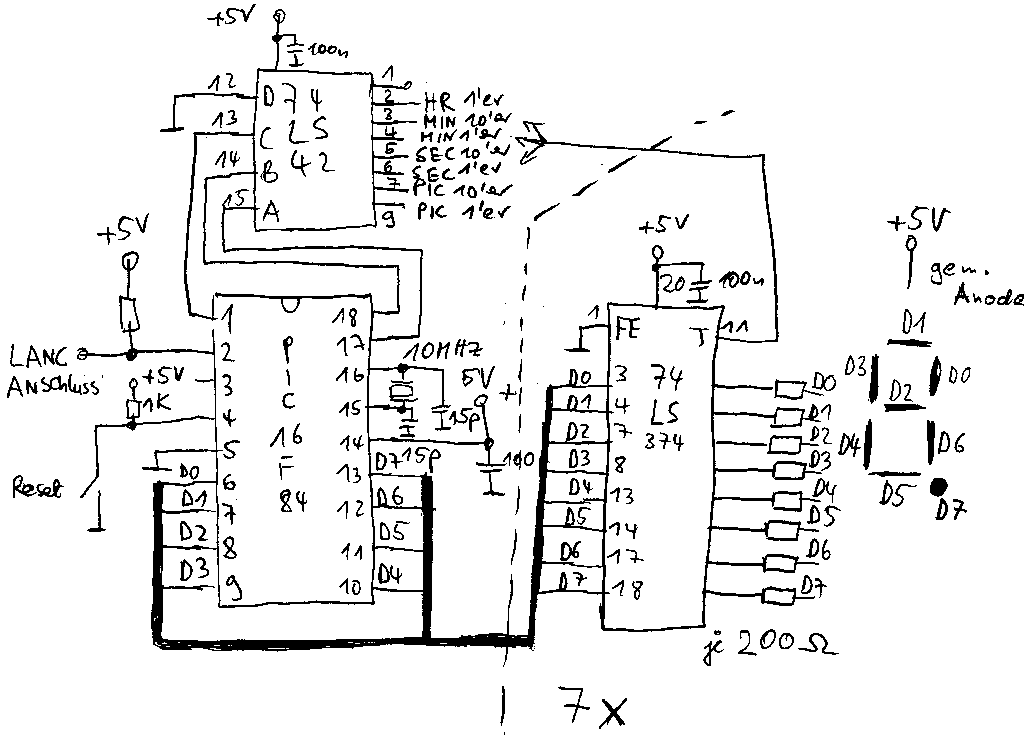 +5V
100n
12 D 74 1
2 HR 1'er
13 C LS 3 MIN 10'er
4 MIN 1'er
14 B 42 5 SEC 10'er
6 SEC 1'er
15 A 7 PIC 10'er
9 PIC 1'er
+5V
LANC
ANSCHLUSS
+5V
1K
Reset
1 18
2 17
3 16
4 15
5 14
D0 6 13 D7
D1 7 12 D6
D2 8 11 D5
D3 9 10 D4
PIC
16
F
84
10MHZ
15p
15p
5V
+
100
+5V
20 100n
1 FE 11
D0 3 74 D0
D1 4 LS D1
D2 7 374 D2
D3 8 D3
D4 13 D4
D5 14 D5
D6 17 D6
D7 18 D7
je 200Ω
7x
+5V
gem.
Anode
D1
D3 D0
D2
D4 D6
D5 D7